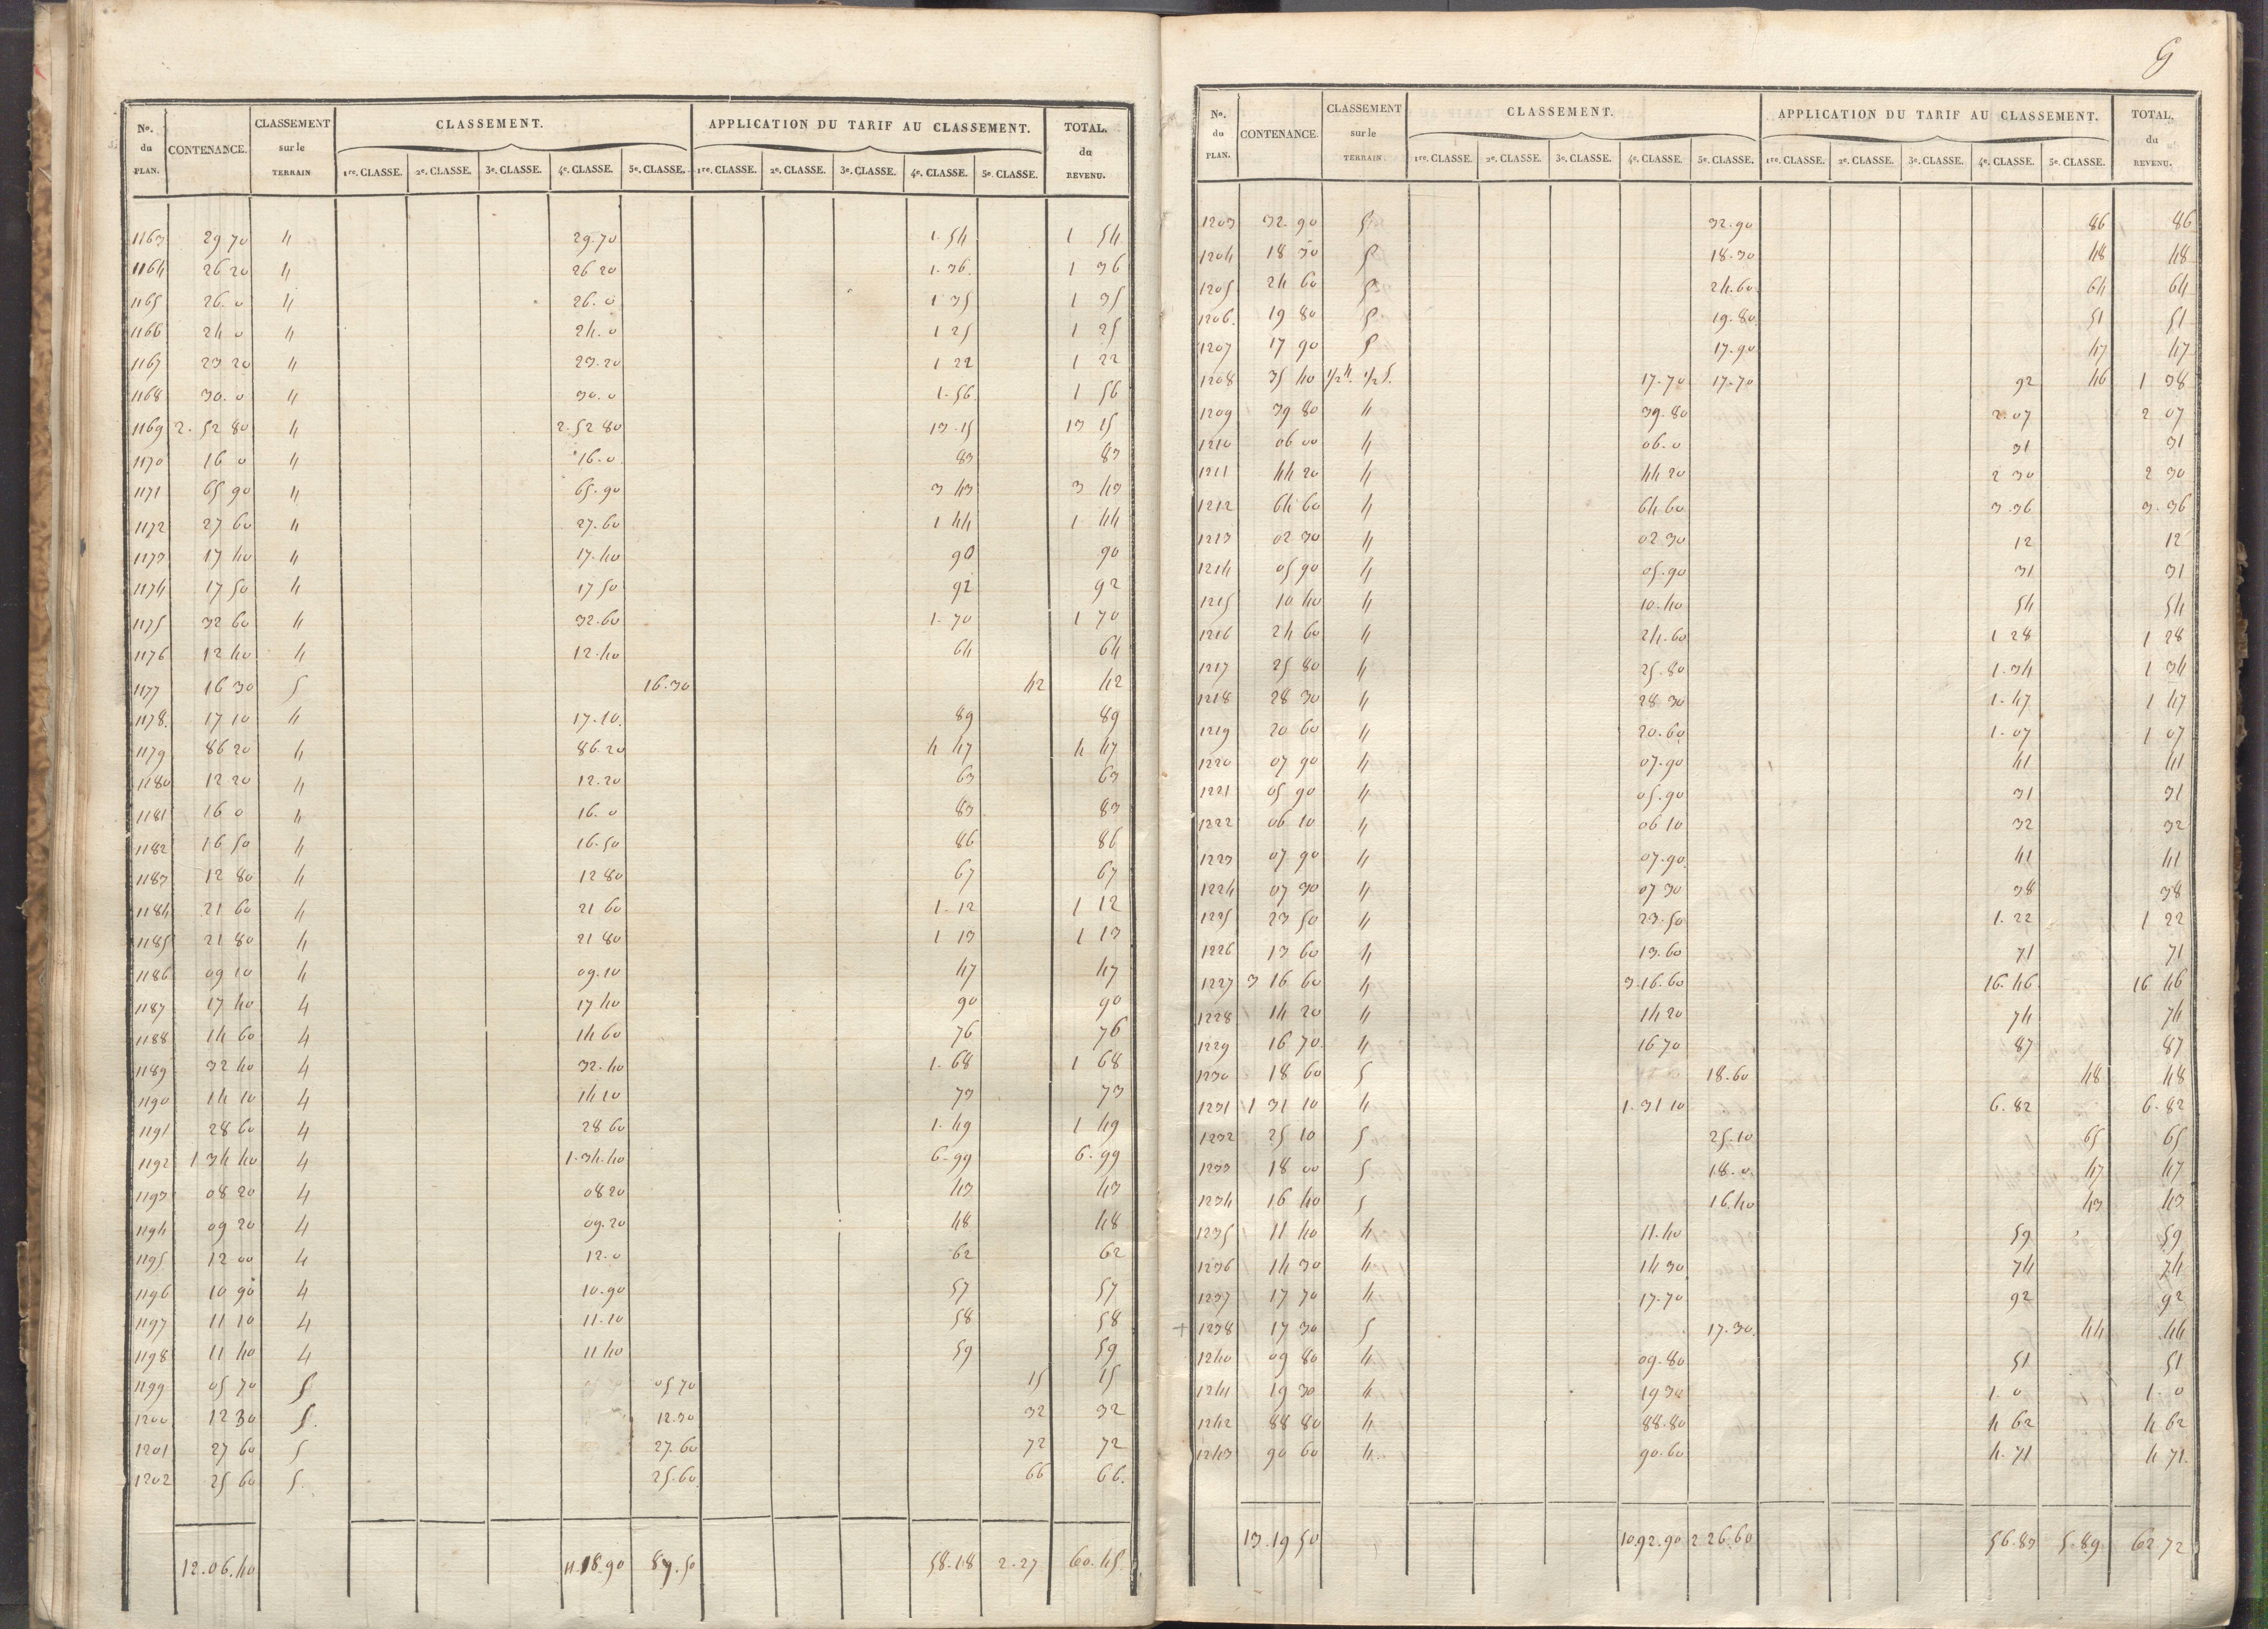 No. du PLAN. CONTENANCE. CLASSEMENT sur le TERRAIN CLASSEMENT. APPLICATION DU TARIF AU CLASSEMENT. TOTAL. du REVENU.
1re. CLASSE. 2e. CLASSE. 3e. CLASSE. 4e. CLASSE. 5e. CLASSE. 1re. CLASSE. 2e. CLASSE. 3e. CLASSE. 4e. CLASSE. 5e. CLASSE.
1163 29 70 4 29.70 1.54 1 54
1164 26 20 4 26 20 1.36. 1 36
1165 26. 0 4 26. 0 1 35 1 35
1166 24 0 4 24. 0 1 25 1 25
1167 23 20 4 23.20 1 22 1 22
1168 30. 0 4 30. 0 1.56 1 56
1169 2. 52 80 4 2.52 80 13.15 13 15
1170 16 0 4 16.0 83 83
1171 65 90 4 65.90 3 43 3 43
1172 27 60 4 27.60 1 44 1 44
1173 17 40 4 17.40 90 90
1174 17 50 4 17 50 92 92
1175 32 60 4 32.60 1.70 1 70
1176 12 40 4 12.40 64 64
1177 16 30 5 16.30 42 42
1178. 17 10 4 17.10. 89 89
1179 86 20 4 86.20 4 47 4 47
1180 12 20 4 12.20 63 63
1181 16 0 4 16. 0 83 83
1182 16 50 4 16.50 86 86
1183 12 80 4 12 80 67 67
1184 21 60 4 21 60 1.12 1 12
1185 21 80 4 21 80 1 13 1 13
1186 09 10 4 09.10 47 47
1187 17 40 4 17 40 90 90
1188 14 60 4 14 60 76 76
1189 32 40 4 32.40 1.68 1 68
1190 14 10 4 14 10 73 73
1191 28 60 4 28 60 1.49 1 49
1192 1 34 40 4 1.34.40 6.99 6.99
1193 08 20 4 08 20 43 43
1194 09 20 4 09.20 48 48
1195 12 00 4 12.0 62 62
1196 10 90 4 10.90 57 57
1197 11 10 4 11.10 58 58
1198 11 40 4 11 40 59 59
1199 05 70 5 05 70 15 15
1200 12 30 5. 12.30 32 32
1201 27 60 5 27.60 72 72
1202 25 60 5. 25.60 66 66.
12.06.40 11.18.90 87.50 58.18 2.27 60.45.
9
No. du PLAN. CONTENANCE. CLASSEMENT sur le TERRAIN. CLASSEMENT. APPLICATION DU TARIF AU CLASSEMENT. TOTAL. du REVENU.
1re. CLASSE. 2e. CLASSE. 3e. CLASSE. 4e. CLASSE. 5e. CLASSE. 1re. CLASSE. 2e. CLASSE. 3e. CLASSE. 4e. CLASSE. 5e. CLASSE.
1203 32. 90 5 32.90 86 86
1204 18 30 5 18.30 48 48
1205 24 60 5 24.60. 64 64
1206. 19 80 5 19.80 51 51
1207 17 90 5 17.90 47 47
1208 35 40 1/2 4. 1/2 5. 17.70 17.70 92 46 1 38
1209 39 80 4 39.80 2.07 2 07
1210 06 00 4 06.0 31 31
1211 44 20 4 44 20 2 30 2 30
1212 64 60 4 64 60 3.36 3.36
1213 02 30 4 02 30 12 12
1214 05 90 4 05.90 31 31
1215 10 40 4 10.40 54 54
1216 24 60 4 24.60 1 28 1 28
1217 25 80 4 25.80 1.34 1 34
1218 28 30 4 28 30 1.47 1 47
1219 20 60 4 20.60 1.07 1 07
1220 07 90 4 07.90 41 41
1221 05 90 4 05.90 31 31
1222 06 10 4 06 10 32 32
1223 07 90 4 07.90 41 41
1224 07 30 4 07 30 38 38
1225 23 50 4 23.50 1.22 1 22
1226 13 60 4 13.60 71 71
1227 3 16 60 4 3.16.60 16.46 16 46
1228 14 20 4 14 20 74 74
1229 16 70 4 16 70 87 87
1230 18 60 5 18.60 48 48
1231 1 31 10 4 1.31 10 6.82 6.82
1232 25 10 5 25.10 65 65
1233 18 00 5 18.0. 47 47
1234 16 40 5 16.40 43 43
1235 11 40 4 11.40 59 59
1236 14 30 4 14 30 74 74
1237 17 70 4 17.70 92 92
+ 1238 17 30 5 17.30. 44 44
1240 09 80 4 09.80 51 51
1241 19 30 4 19 30 1. 0 1. 0
1242 88 80 4 88.80 4 62 4 62
1243 90 60 4 90.60 4.71 4 71.
13.19 50 10.92.90 2 26.60 56.83 5.89 62.72